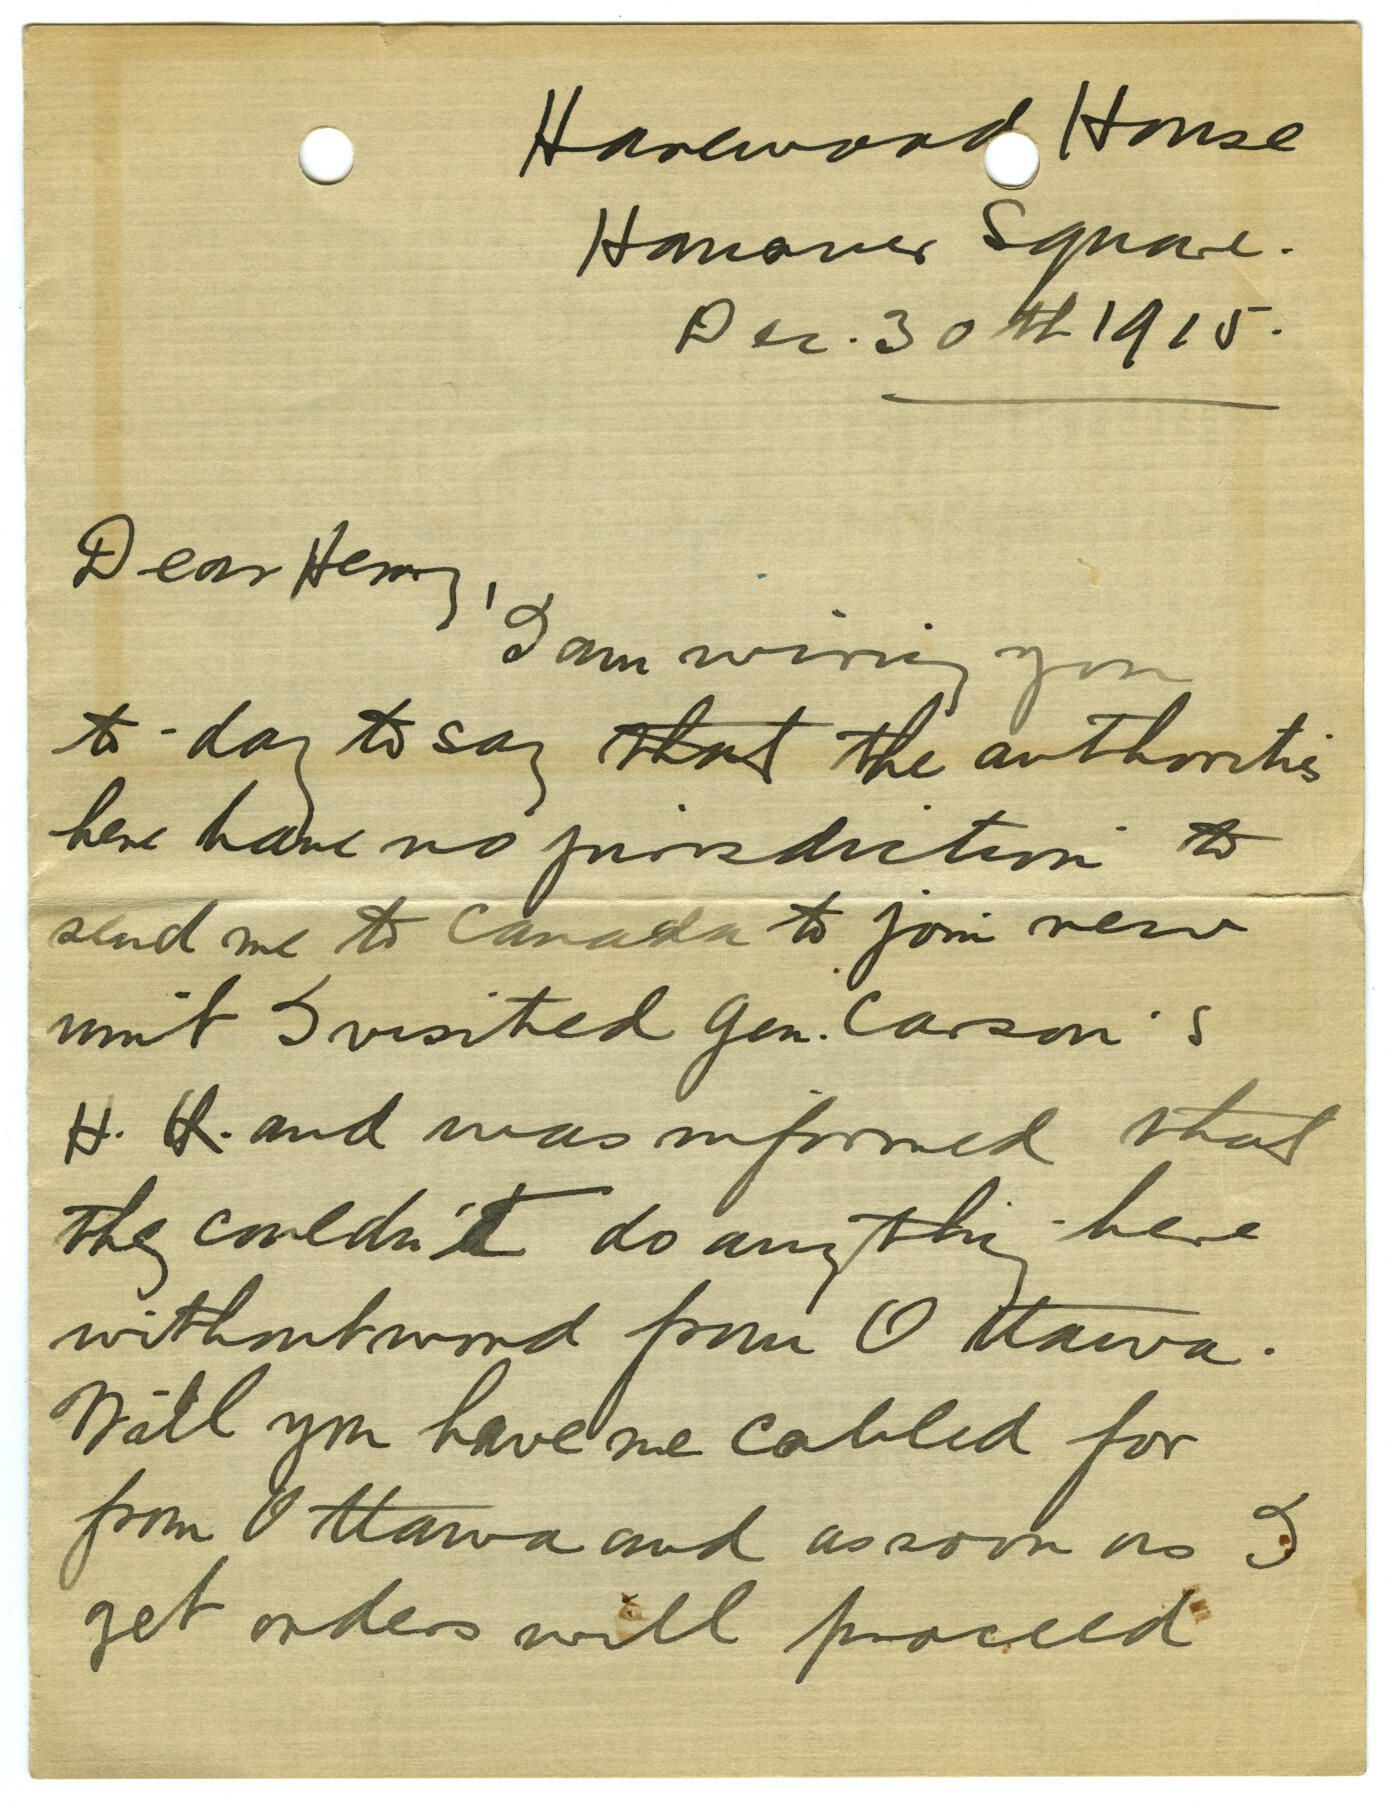 Harewood House
Hanover Square.
Dec. 30th 1915.
Dear Henry,
I am wiring you
to-day to say that the authorities
here have no jurisdiction to
send me to Canada to join new
unit I visited Gen. Carson's
H. Q. and was informed that
they couldn't do anything here
without word from Ottawa.
Will you have me cabled for
from Ottawa and as soon as I
get orders will proceed